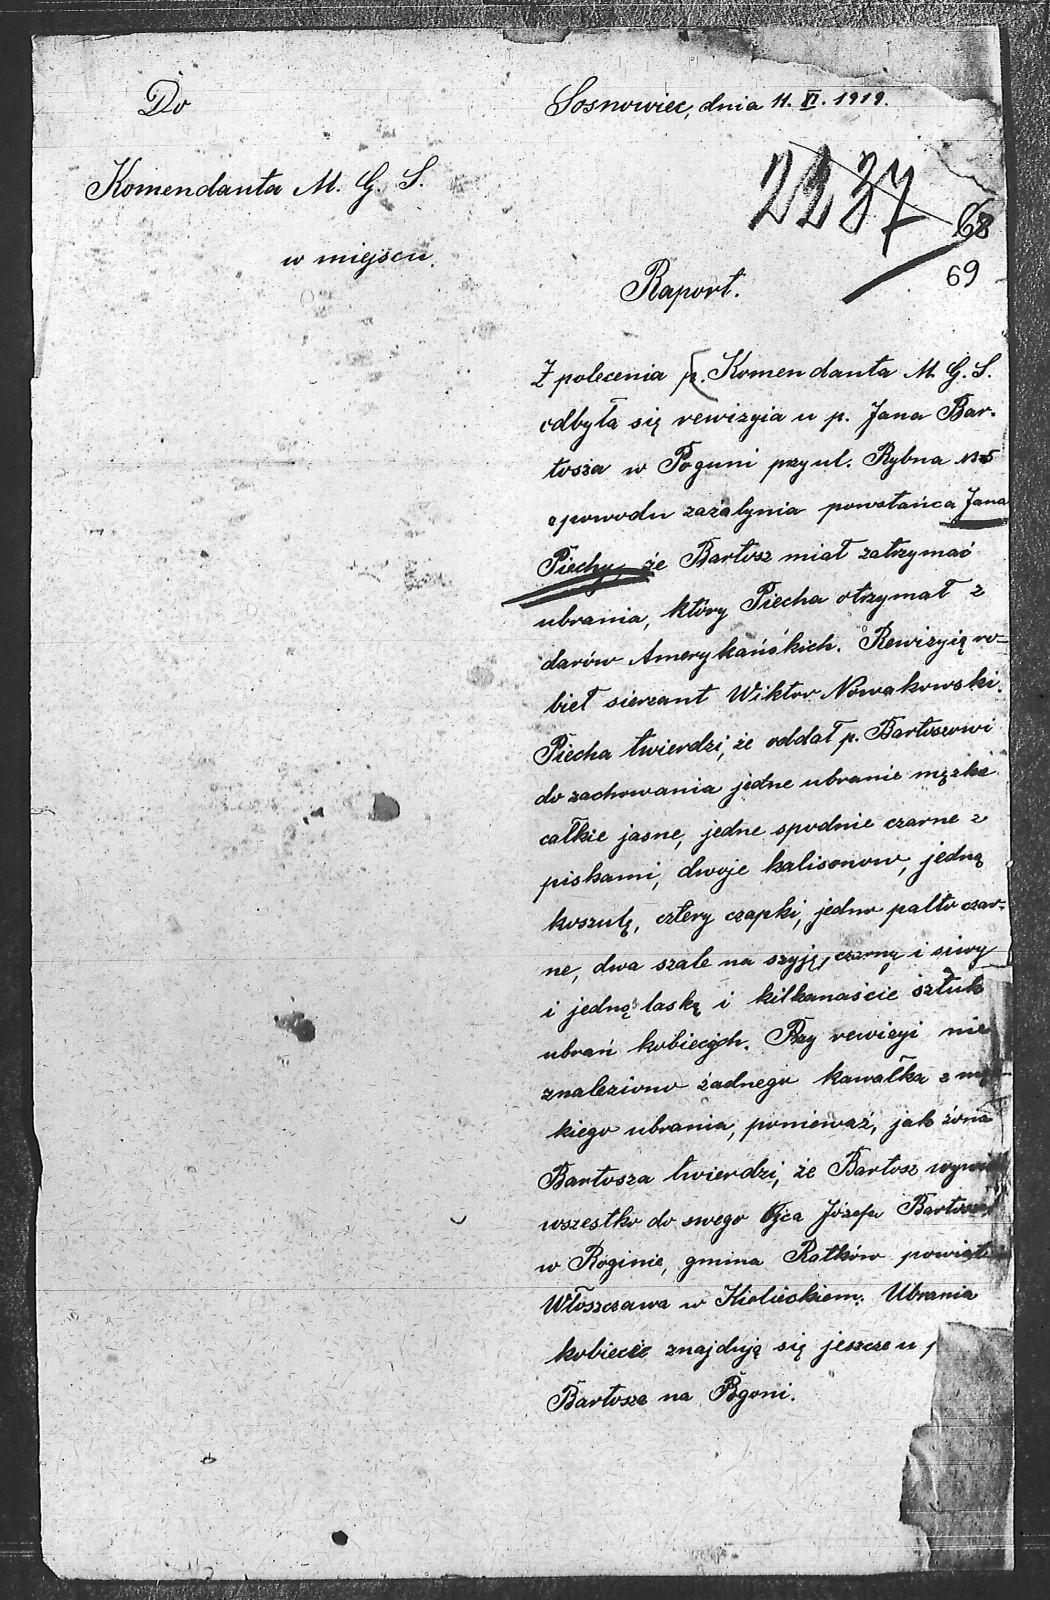 Do
Sosnowiec, dnia 11. VI. 1919.
Komendanta M. G. S.
w miejscu.
2237
68
69
Raport.
Z polecenia p. Komendanta M. G. S.
odbyła się rewizyia u p. Jana Bar-
tosza w Poguni przy ul. Rybna № 5
z powodu zażalynia powstańca Jana
Piechy, że Bartosz miał zatrzymać
ubrania, który Piecha otrzymał z
darów Amerykańskich. Rewizyię ro=
bieł sierzant Wiktor Nowakowski.
Piecha twierdzi, że oddał p. Bartoszowi
do zachowania jedne ubranie męzke
całkie jasne, jedne spodnie czarne z
piskami, dwoje kalisonow, jedną
koszulę, cztery czapki, jedno palto czar=
ne, dwa szale na szyję, czarny i siwy
i jedną laskę i kilkanaście sztuk
ubrań kobiecych. Przy rewizyi nie
znaleziono żadnego kawałka z
kiego ubrania, ponieważ, jak żona
Bartosza twierdzi, że Bartosz
wszestko do swego Ojca Józefa Bartosza
w Roginie, gmina Ratków powiat
Włoszczawa w Kieleckiem. Ubrania
kobiecie znajdują się jeszcze u
Bartosza na Pogoni.